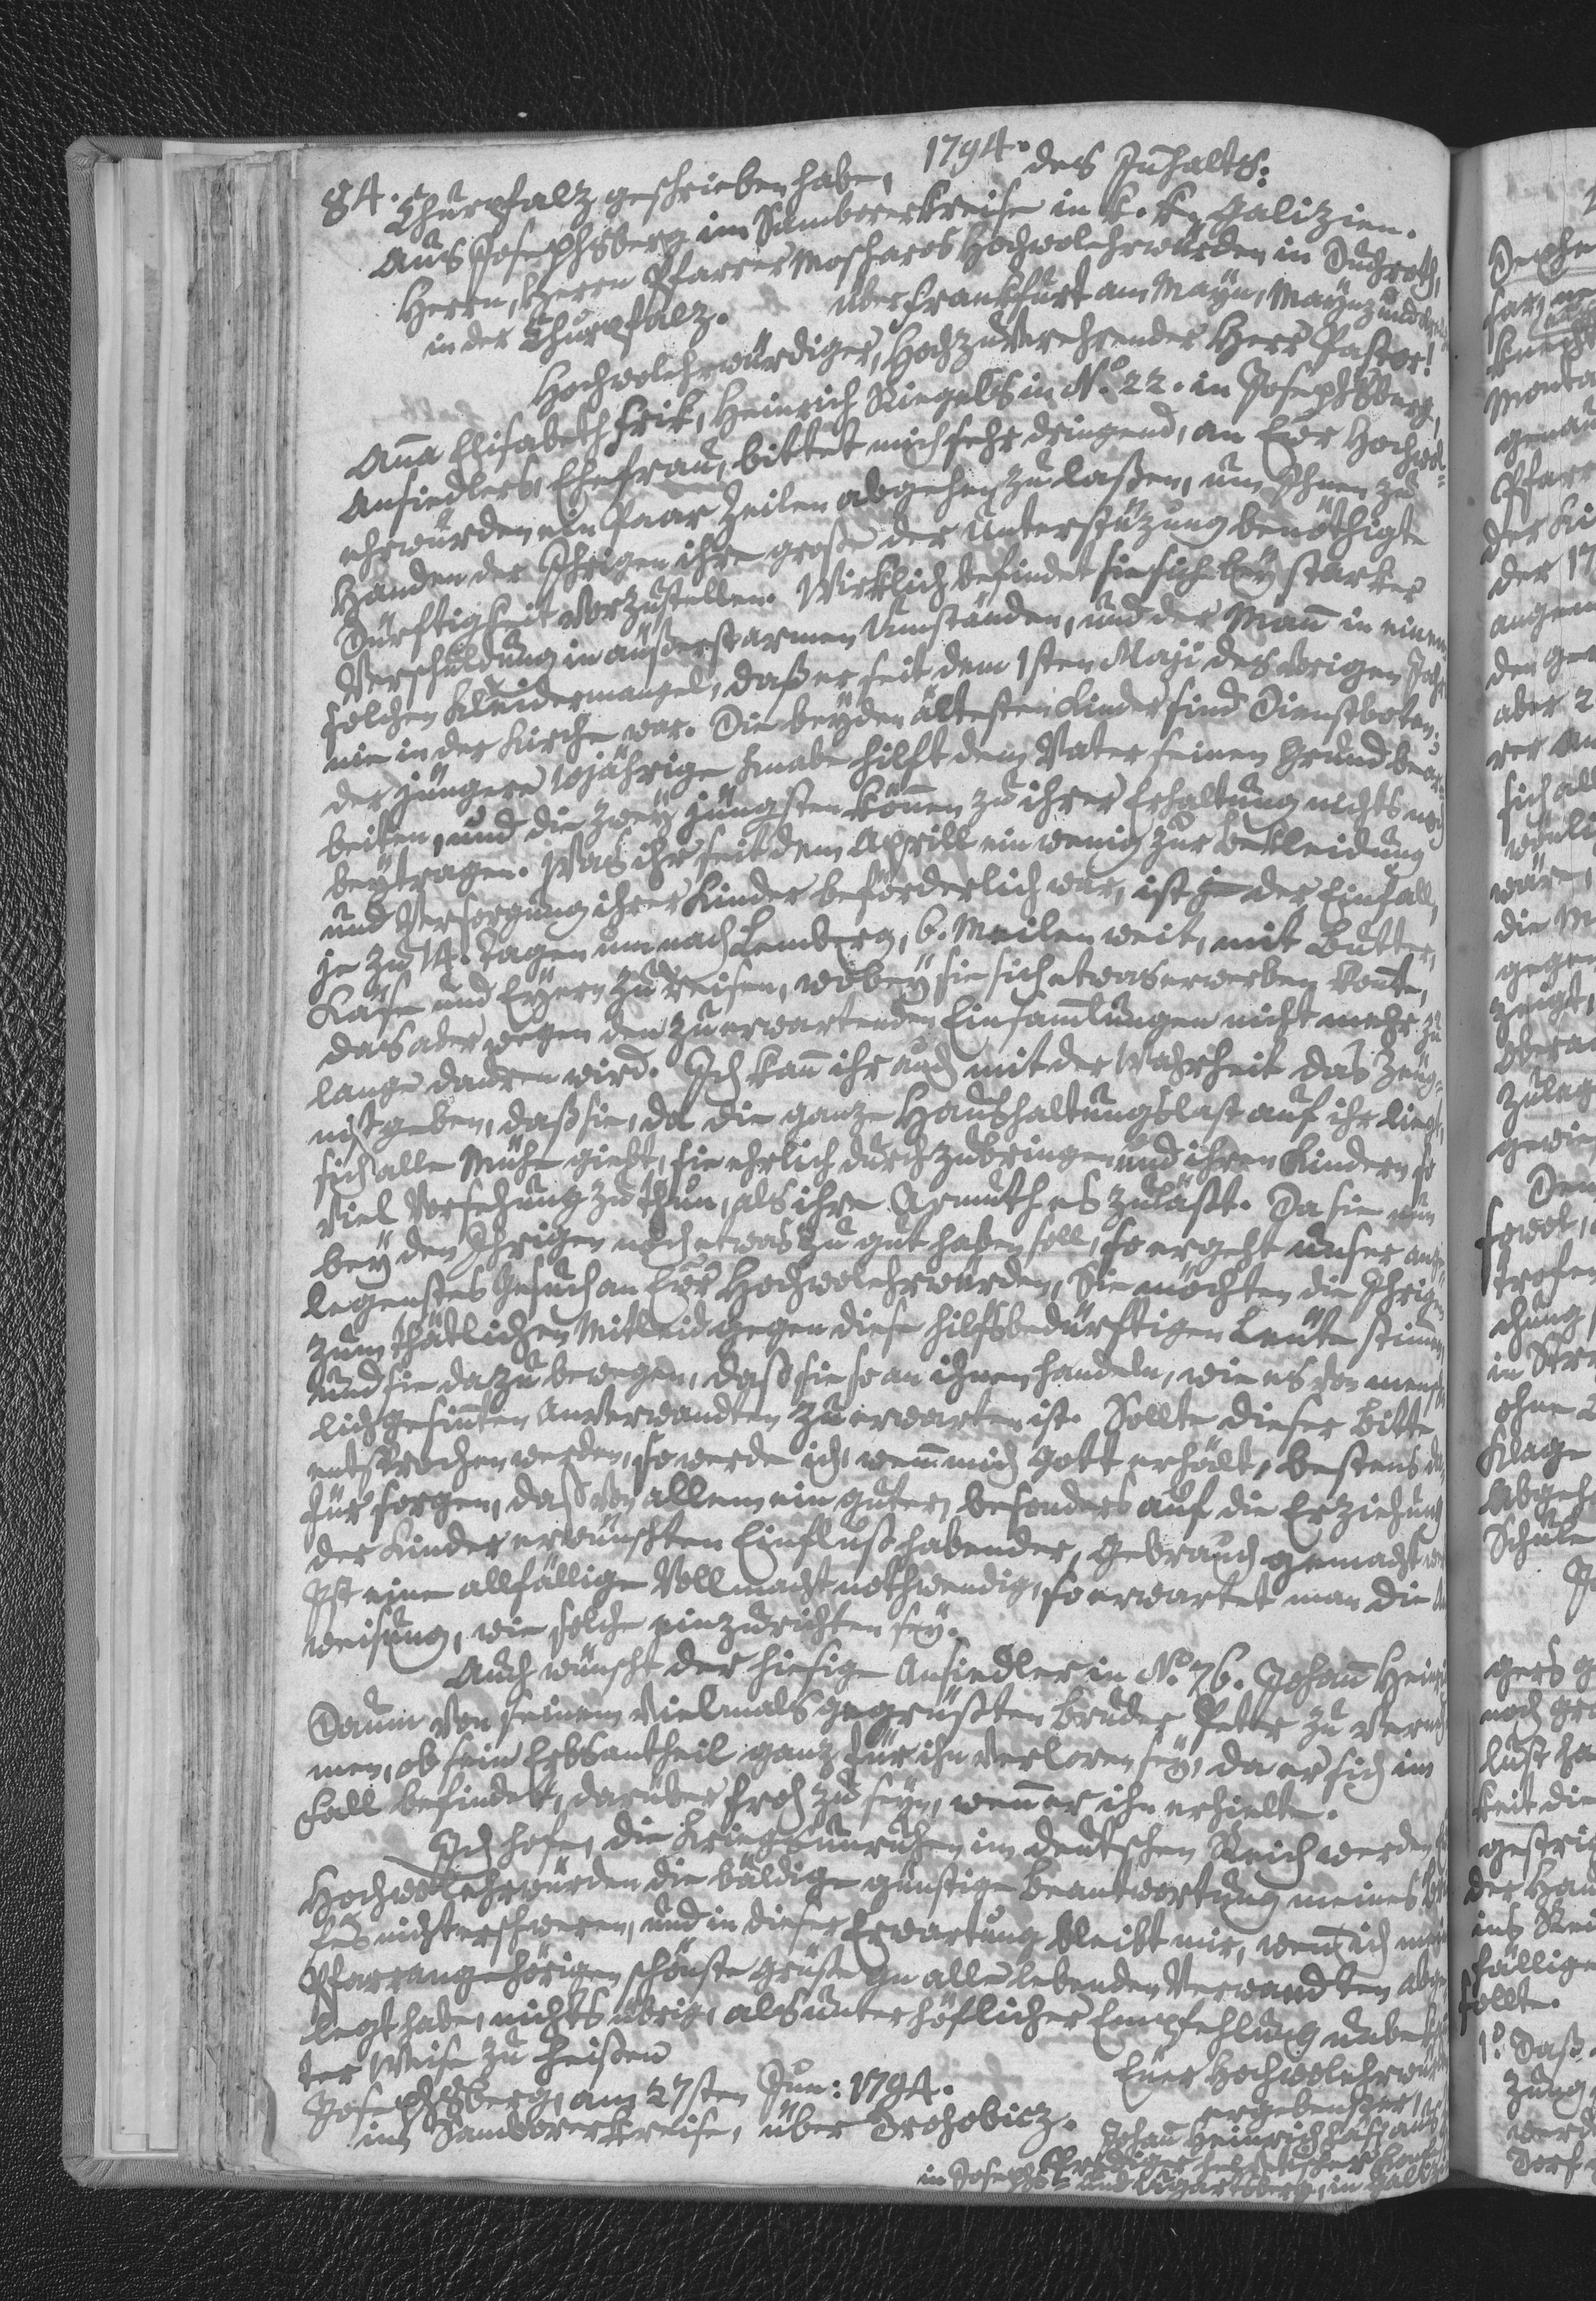 84. 1794.
Churpfalz geschrieben habe, des Innhalts:
Aus Josephsberg im Samborerkreise in k. k. Galizien.
Herrn, Herrn Pfarrer Moscharos Hochwolehrwürden in Duchroth,
in der Churpfalz. über Frankfurt am Mayn, Maynz und
Hochwolehrwürdiger, Hochzuverehrender Herr Pastor!
Anna Elisabeth Frik, Heinrich Riegels in No. 22. in Josephsberg,
Ansiedlers, Ehefrau, bittet mich sehr dringend, an Euer Hochwol-
ehrwürden ein paar Zeilen abgehen zu laßen, um Ihnen zu
Handen der Ihrigen ihre große der Unterstüzung benöthigte
Dürftigkeit vorzustellen. Wirklich befindet sie sich bey starker
Verschuldung in äußerst armen Umständen, und der Mann in einem
solchen Kleidermangel, daß er seit dem 1sten Maji des vorigen Jahrs
nie in der Kirche war. Die beyden ältesten Kinder sind Dienstboten;
der jüngere 10jährige Knabe hilft dem Vater seinen Grund bear-
beiten, und die zwey jüngsten können zu ihrer Erhaltung nichts noch
beytragen. Was ihr seit dem Aprill ein wenig zur Bekleidung
und Versorgung ihrer Kinder beförderlich war, ist der Einfall,
je zu 14. Tagen um nach Lemberg, 6. Meilen weit, mit Butter,
Käse und Eyern zu reisen, wobey sie sich etwas erwerben konnte,
das aber wegen den zu erwartenden Einsammlungen nicht mehr zu
lange dauren wird. Ich kann ihr auch mit der Wahrheit das Zeug-
niß geben, daß sie, da die ganze Haushaltungslast auf ihr liegt,
sich alle Mühe giebt, sie ehrlich durchzubringen und ihren Kindern so
viel Vorsehung zu thun, als ihre Armuth es zuläßt. Da sie nun
bey den Ihrigen noch etwas zu gut haben soll, so ergeht unser ange-
legenstes Gesuch an Euer Hochwolehrwürden, Sie möchten die Ihrigen
zum thätlichen Mitleid gegen diese hilfsbedürftigen Leute stimmen
und sie dazu bewegen, daß sie so an ihnen handeln, wie es von mensch-
lich gesinnten Anverwandten zu erwarten ist. Sollte dieser Bitte
entsprochen werden, so werde ich, wenn mich Gott erhält, bestens da-
für sorgen, daß von allem ein guter, besonders auf die Erziehung
der Kinder erwünschten Einfluß habender, Gebrauch gemacht
Ist eine allfällige Vollmacht nothwendig, so erwartet man die
weisung, wie solche einzurichten sey.
Auch wünscht der hiesige Ansiedler in No. 76. Johann Heinrich
Daum von seinem vielmals gegrüßten Bruder Peter zu verneh-
men, ob sein Erbsantheil ganz für ihn verloren sey, da er sich im
Fall befindet, darüber froh zu seyn, wenn er ihn erhielte.
Ich hofe, die Kriegsunruhen im deutschen Reich werden
Hochwolehrwürden die baldige günstige Beantwortung meines
fes nicht erschweren, und in dieser Erwartung bleibt mir, wenn ich
Pfarrangehörigen schönste Grüße an alle lebenden Verwandten abge-
legt habe, nichts übrig, als unter höflicher Empfehlung unbekann-
ter Weise zu heißen
Josephsberg, am 27sten Jun: 1794. Euer Hochwolehrwürden
im Samborerkreise, über Drohobicz. ergebenster,
Johann Heinrich
Prediger helvetischer Konf.
in Josephs- und Ugartsberg, in Galizien